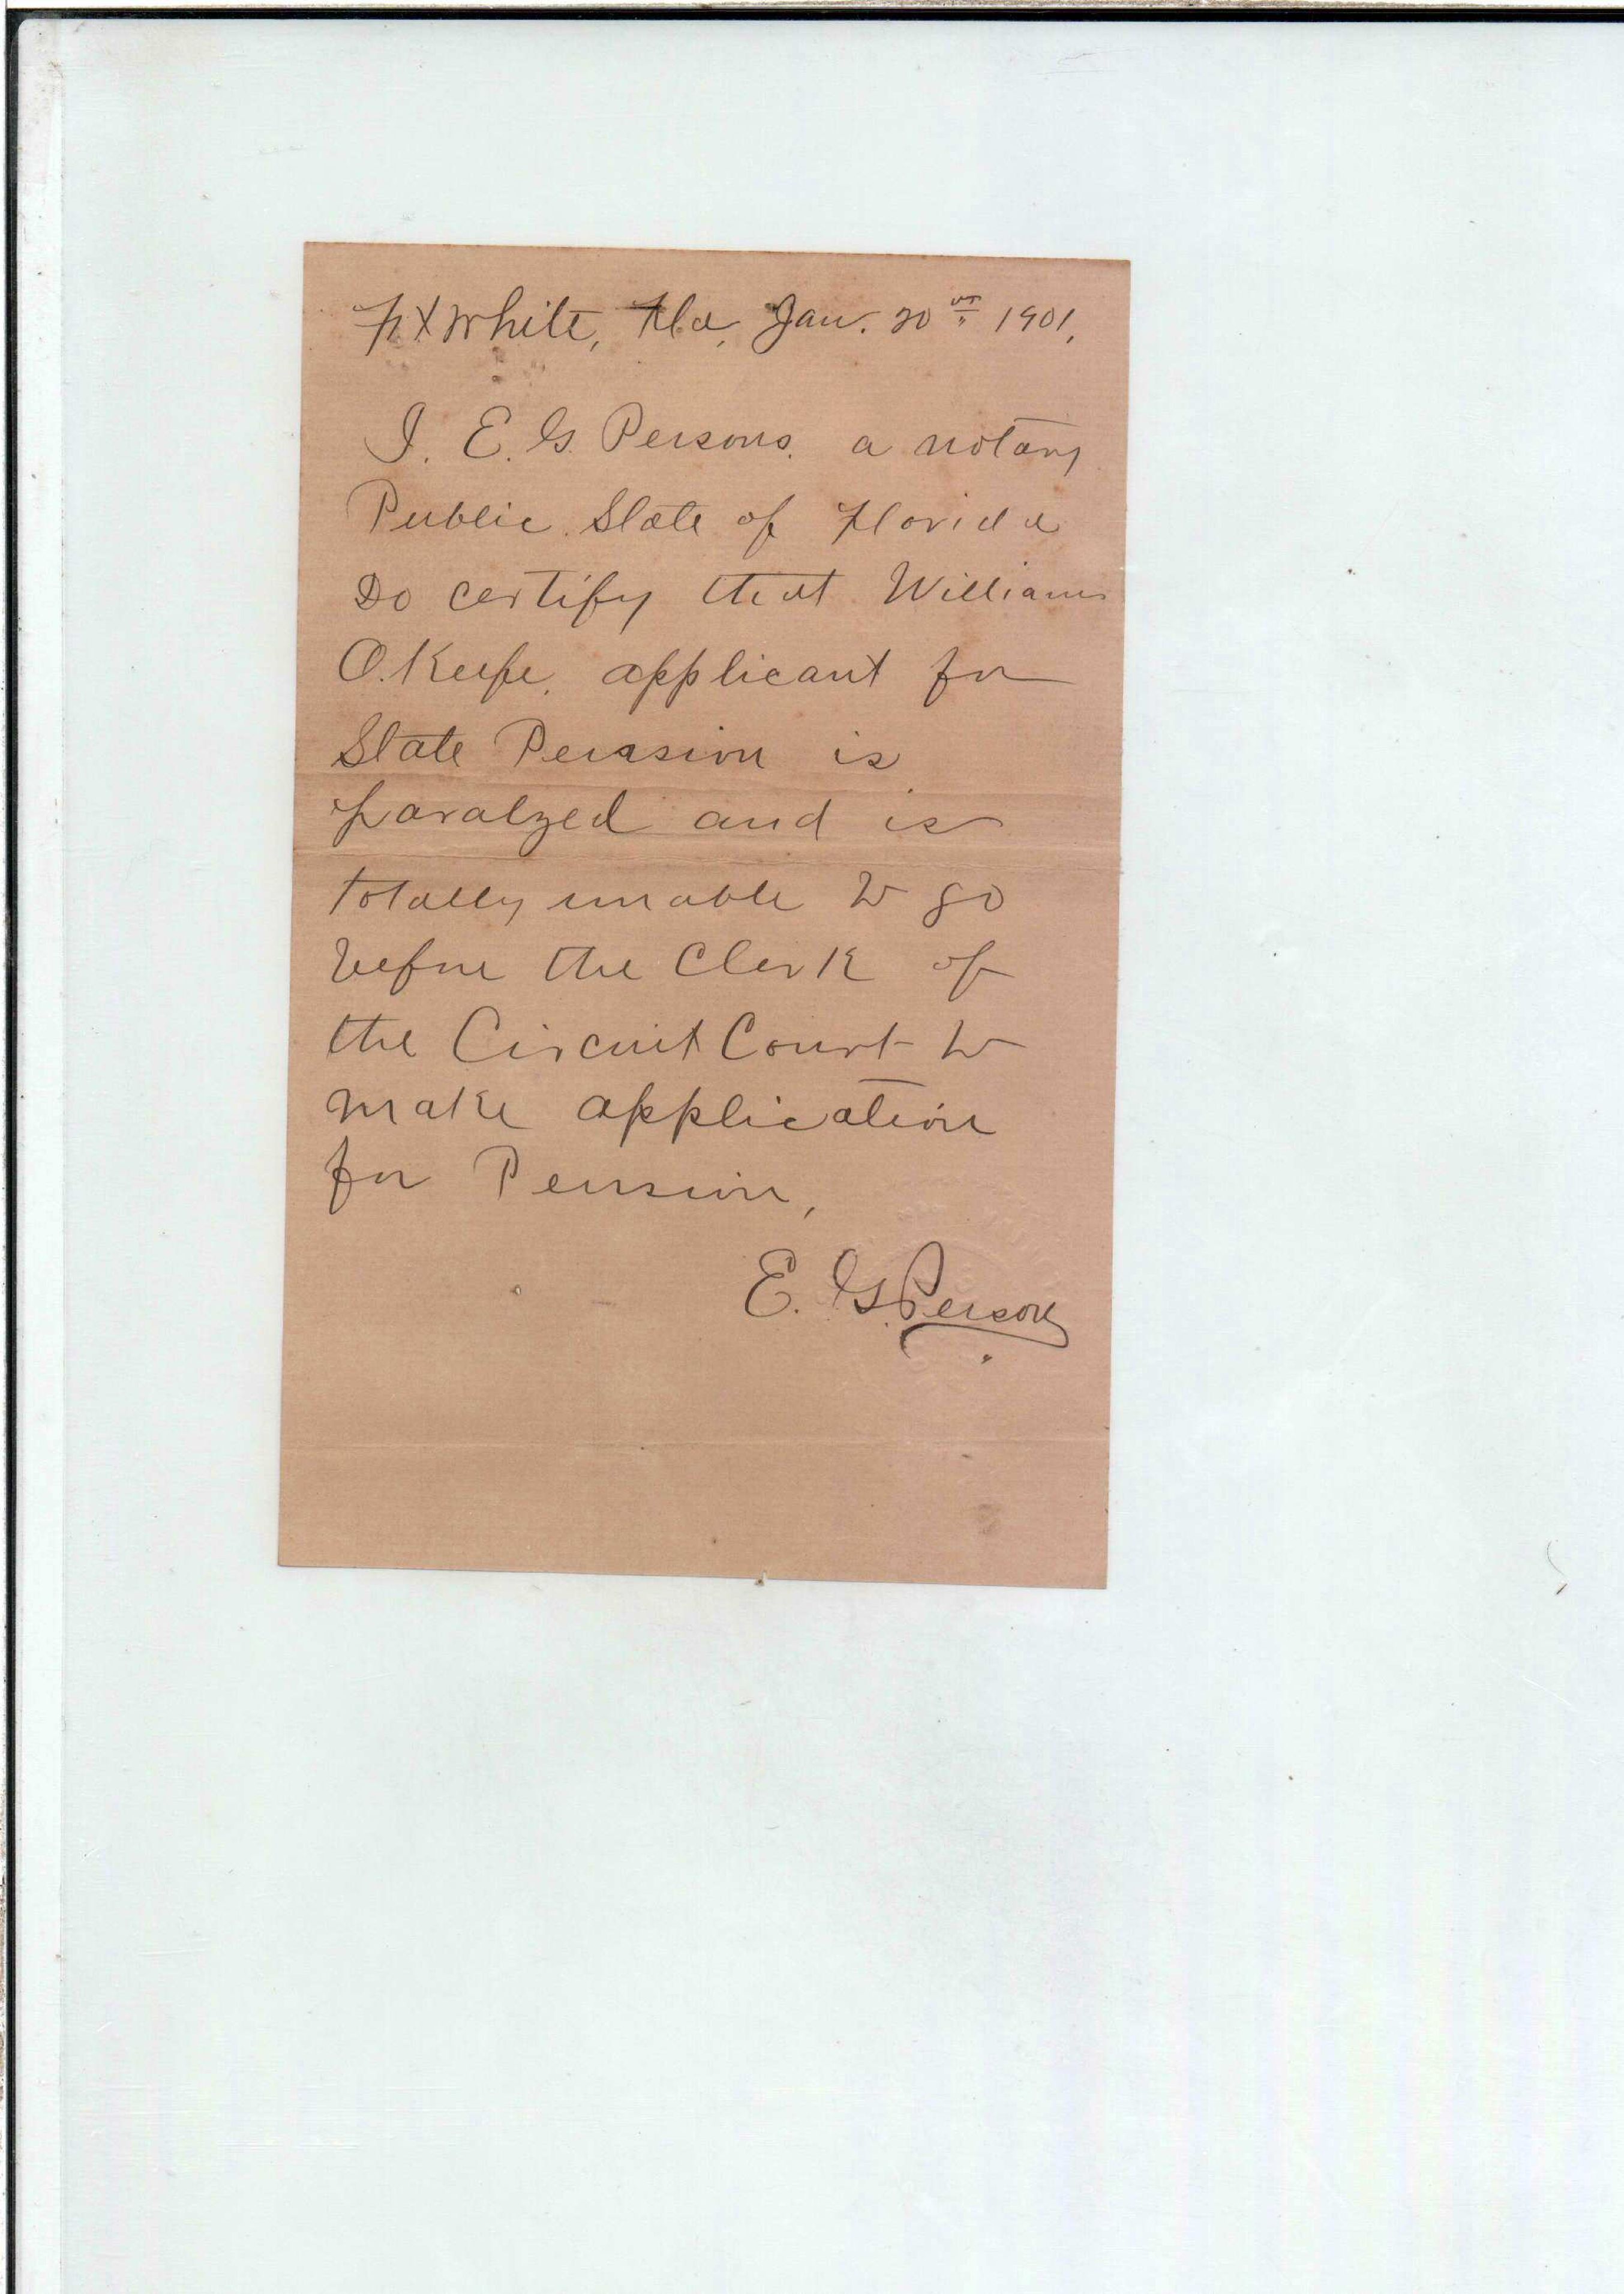 Ft White, Fla, Jan. 20th 1901,
I. E. G. Persons. a notary
Public State of Florida
Do certify that William
O.Keefe, applicant for
State Pension is
paralzed and is
totally unable to go
before the Clerk of
the Circuit Court to
make application
for Pension,
E. G. Persons